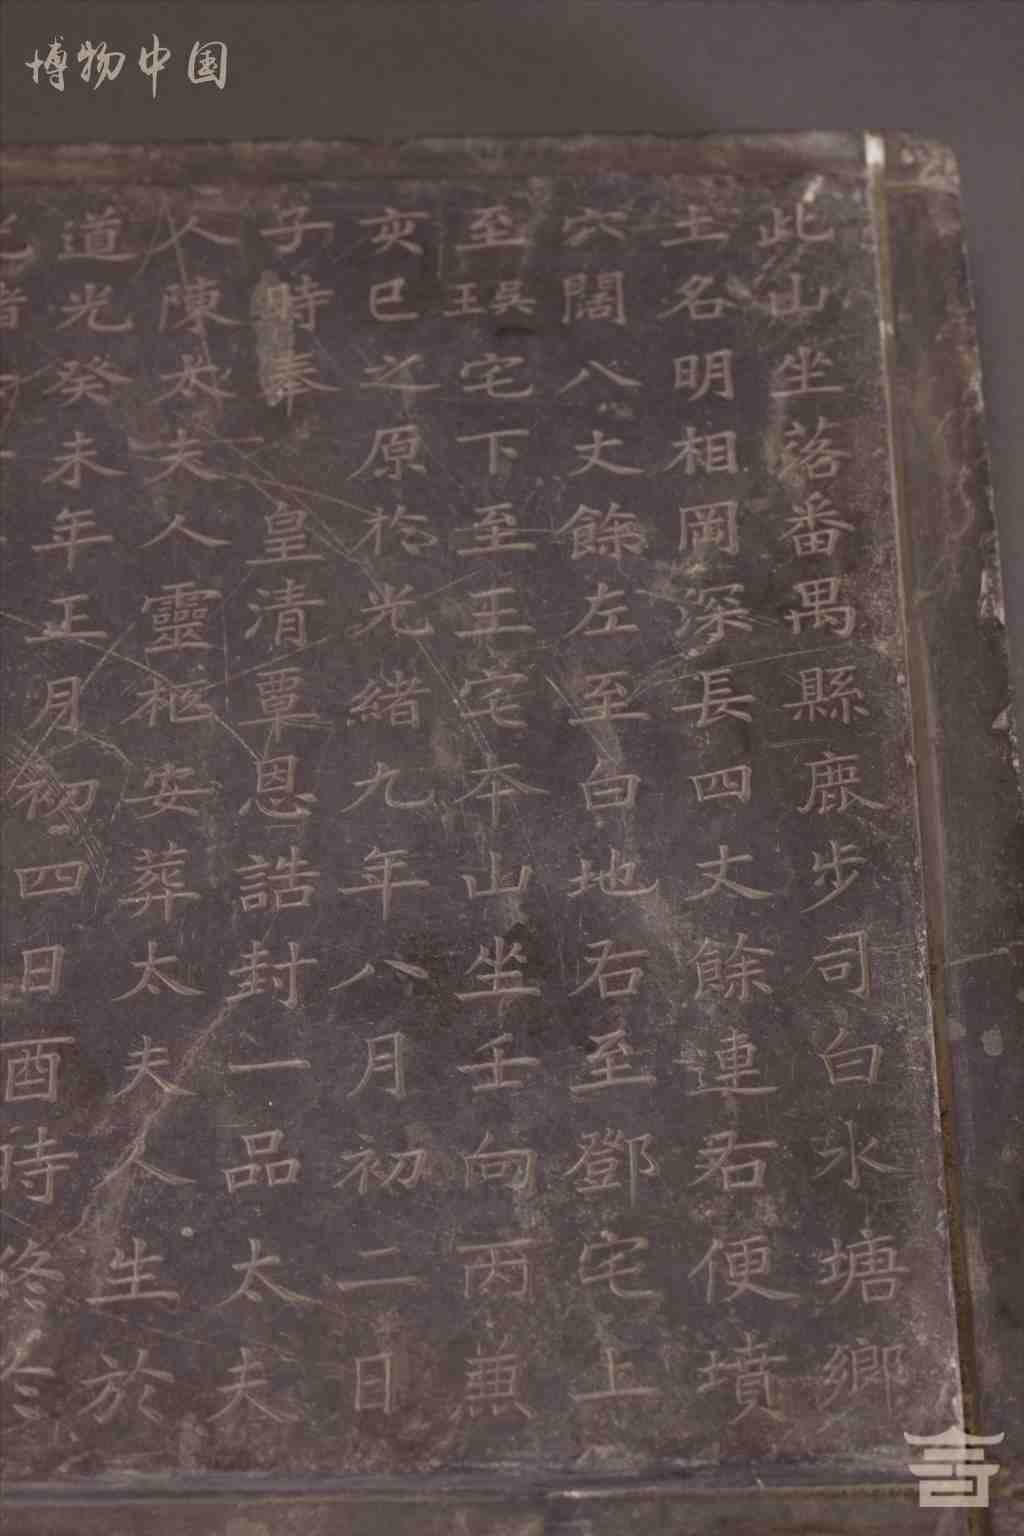 博物中国
此山坐落番禺縣鹿步司白水塘鄉
土名明相岡深長四丈餘連右便墳
穴闊八丈餘左至白地右至鄧宅上
至吴宅下至王宅本山坐壬向丙兼
亥巳之原於光緒九年八月初二日
子時奉 皇清覃恩誥封一品太夫
人陳太夫人靈柩安葬太夫人生於
道光癸未年正月初四日酉時終